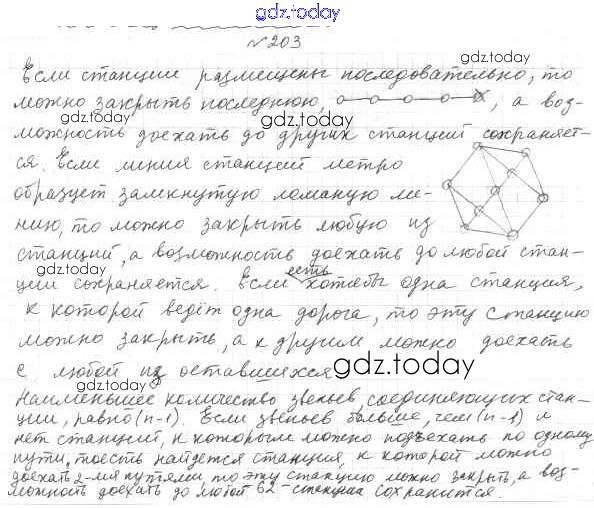 gdz.today
№203
gdz.today
gdz.today
Если станции размещены последовательно, то
можно закрыть последнюю, а воз-
gdz.today
можность доехать до других станций сохраняет-
ся. Если линия станций метро
образует замкнутую ломаную ли-
gdz.today
нию, то можно закрыть любую из
станций, а возможность доехать до любой стан-
gdz.today
gdz.today
ции сохраняется. Если есть хотябы одна станция,
к которой ведёт одна дорога, то эту станцию
можно закрыть, а к другим можно доехать
с любой из оставшихся.
gdz.today
gdz.today
Наименьшее количество звеньев, соединяющих стан-
ции, равно (n-1). Если звеньев больше, чем (n-1) и
нет станций, к которым можно подъехать по одному
пути, тоесть найдется станция, к которой можно
доехать 2-мя путями, то эту станцию можно закрыть, а воз-
можность доехать до любой 62-станции сохранится.